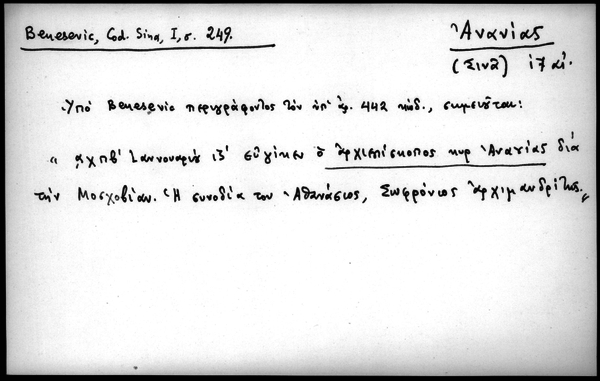 Benesevic, Cod. Sina, I, σ. 249.
Ἀνανίας
(Σινᾶ) ιζ αἰ.
Ὑπὸ Benesevic περιγράφοντος τὸν ὑπ' ἀρ. 442 κώδ., σημειοῦται:
"͵αχπβ' Ἰαννουαρίῳ ιζ' εὐγῆκεν ὁ ἀρχιεπίσκοπος κυρ Ἀνανίας διὰ
τὴν Μοσχοβίαν. Ἡ συνοδία του Ἀθανάσιος, Σωφρόνιος ἀρχιμανδρίτης."